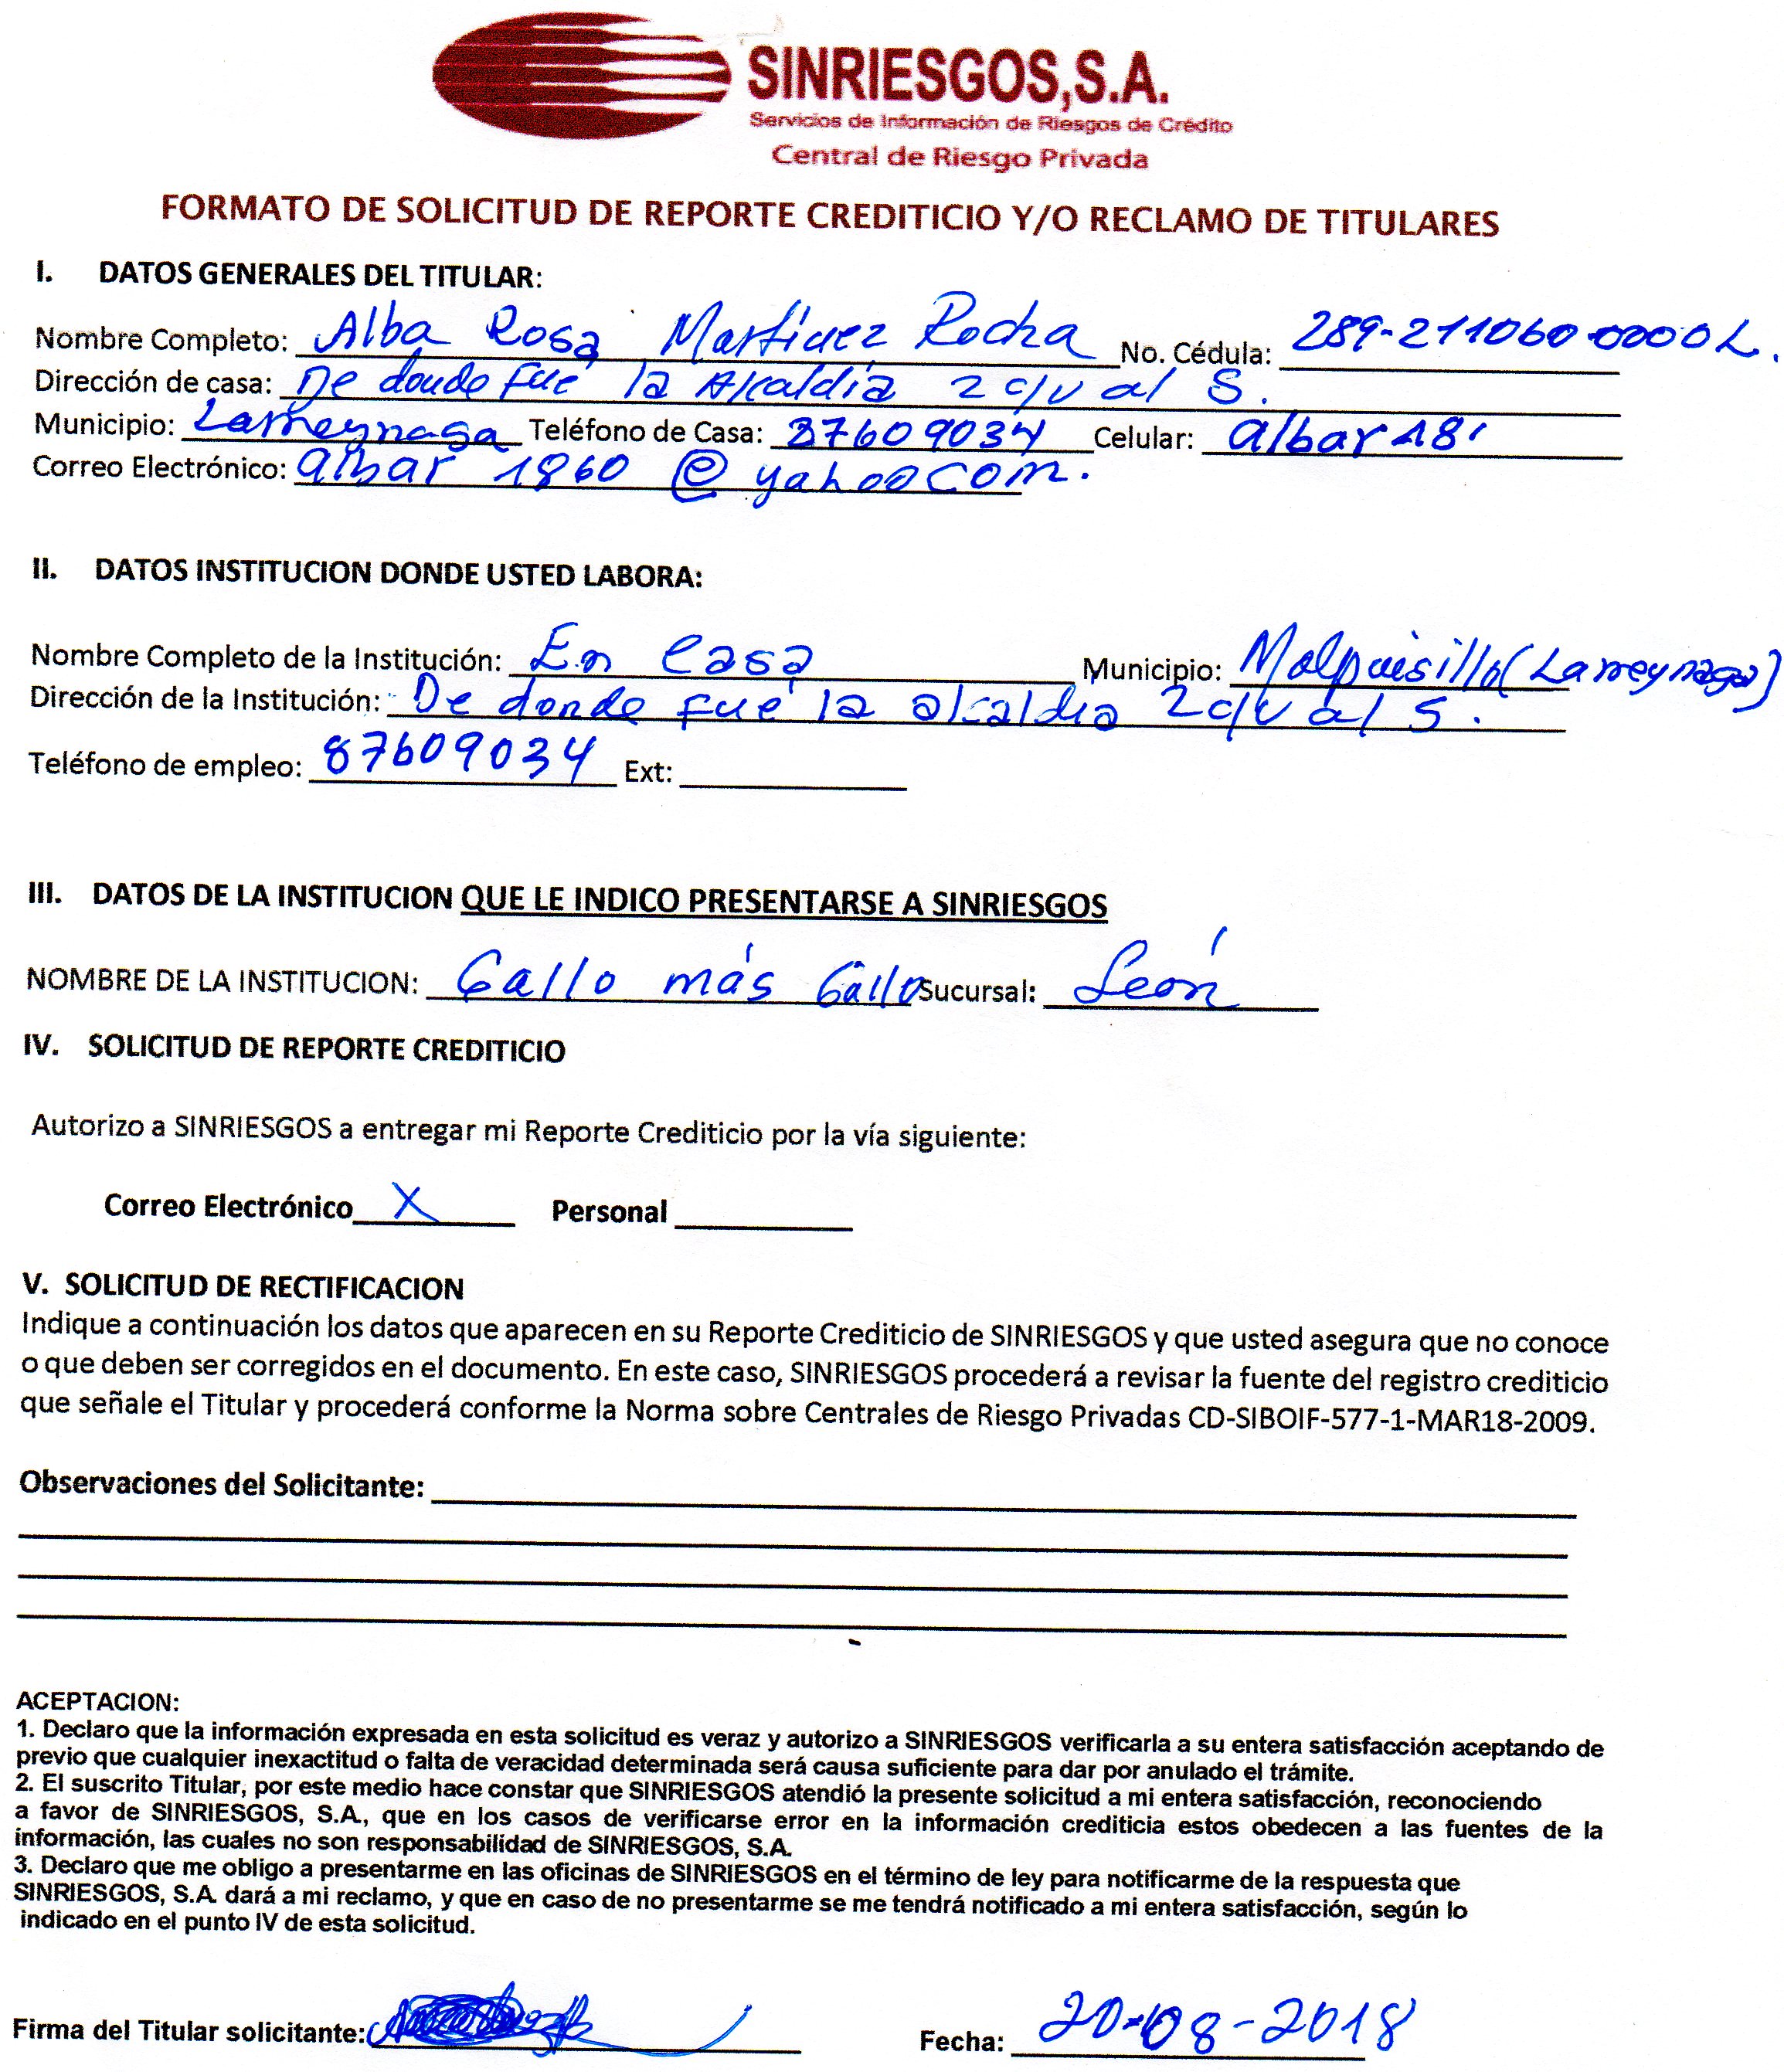 SINRIESGOS,S.A.
Servicios de Información de Riesgos de Crédito
Central de Riesgo Privada
FORMATO DE SOLICITUD DE REPORTE CREDITICIO Y/O RECLAMO DE TITULARES
I. DATOS GENERALES DEL TITULAR:
Nombre Completo: Alba Rosa Martinez Rocha No. Cédula: 289-211060-0000L.
Dirección de casa: De donde fué la Alcaldía 2 c/v al S.
Municipio: Larreynaga Teléfono de Casa: 87609034 Celular: albar 18
Correo Electrónico: albar 1860 @ yahoo com.
II. DATOS INSTITUCION DONDE USTED LABORA:
Nombre Completo de la Institución: En Casa Municipio: Malpaisillo (Larreynaga)
Dirección de la Institución: De donde fué la alcaldía 2 c/v al S.
Teléfono de empleo: 87609034 Ext:
III. DATOS DE LA INSTITUCION QUE LE INDICO PRESENTARSE A SINRIESGOS
NOMBRE DE LA INSTITUCION: Gallo más Gallo Sucursal: León
IV. SOLICITUD DE REPORTE CREDITICIO
Autorizo a SINRIESGOS a entregar mi Reporte Crediticio por la vía siguiente:
Correo Electrónico X Personal
V. SOLICITUD DE RECTIFICACION
Indique a continuación los datos que aparecen en su Reporte Crediticio de SINRIESGOS y que usted asegura que no conoce
o que deben ser corregidos en el documento. En este caso, SINRIESGOS procederá a revisar la fuente del registro crediticio
que señale el Titular y procederá conforme la Norma sobre Centrales de Riesgo Privadas CD-SIBOIF-577-1-MAR18-2009.
Observaciones del Solicitante:
ACEPTACION:
1. Declaro que la información expresada en esta solicitud es veraz y autorizo a SINRIESGOS verificarla a su entera satisfacción aceptando de
previo que cualquier inexactitud o falta de veracidad determinada será causa suficiente para dar por anulado el trámite.
2. El suscrito Titular, por este medio hace constar que SINRIESGOS atendió la presente solicitud a mi entera satisfacción, reconociendo
a favor de SINRIESGOS, S.A., que en los casos de verificarse error en la información crediticia estos obedecen a las fuentes de la
información, las cuales no son responsabilidad de SINRIESGOS, S.A.
3. Declaro que me obligo a presentarme en las oficinas de SINRIESGOS en el término de ley para notificarme de la respuesta que
SINRIESGOS, S.A. dará a mi reclamo, y que en caso de no presentarme se me tendrá notificado a mi entera satisfacción, según lo
indicado en el punto IV de esta solicitud.
Firma del Titular solicitante: Fecha: 20-08-2018